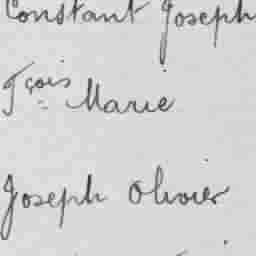 Constant Joseph
Fçois Marie
Joseph Olivier